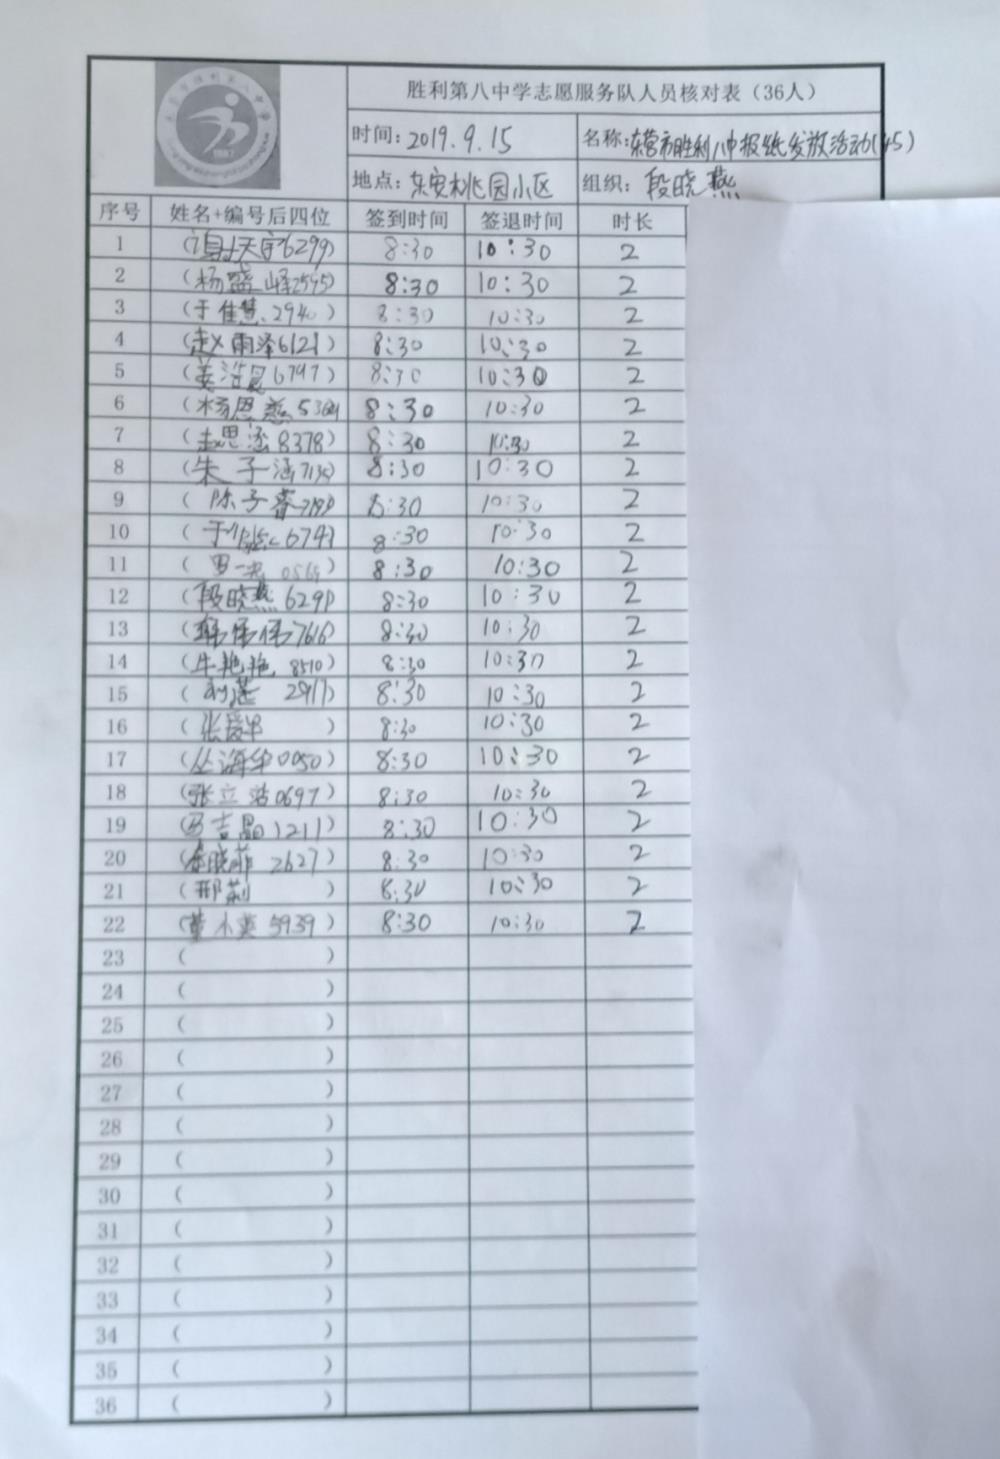 胜利第八中学志愿服务队人员核对表（36人）
时间：2019.9.15 名称：东营市胜利八中报纸发放活动(145)
地点：东安桃园小区 组织：段晓燕
序号 姓名+编号后四位 签到时间 签退时间 时长
1 (谢天宇6299) 8:30 10:30 2
2 (杨盛峄2595) 8:30 10:30 2
3 (于佳慧 2940) 8:30 10:30 2
4 (赵雨泽6121) 8:30 10:30 2
5 (姜浩 6797) 8:30 10:30 2
6 (杨恩慈) 8:30 10:30 2
7 (赵思涵8378) 8:30 10:30 2
8 (朱子涵) 8:30 10:30 2
9 (陈子睿) 8:30 10:30 2
10 (于 6741) 8:30 10:30 2
11 (罗一) 8:30 10:30 2
12 (段晓燕6291) 8:30 10:30 2
13 (韩伟伟7616) 8:30 10:30 2
14 (牛艳艳 8510) 8:30 10:30 2
15 (刘莲 2917) 8:30 10:30 2
16 (张爱华 ) 8:30 10:30 2
17 (丛海华0050) 8:30 10:30 2
18 (张立 0697) 8:30 10:30 2
19 (吉晶1211) 8:30 10:30 2
20 (晓菲 2627) 8:30 10:30 2
21 (邢莉 ) 8:30 10:30 2
22 (董小英5939) 8:30 10:30 2
23 ( )
24 ( )
25 ( )
26 ( )
27 ( )
28 ( )
29 ( )
30 ( )
31 ( )
32 ( )
33 ( )
34 ( )
35 ( )
36 ( )